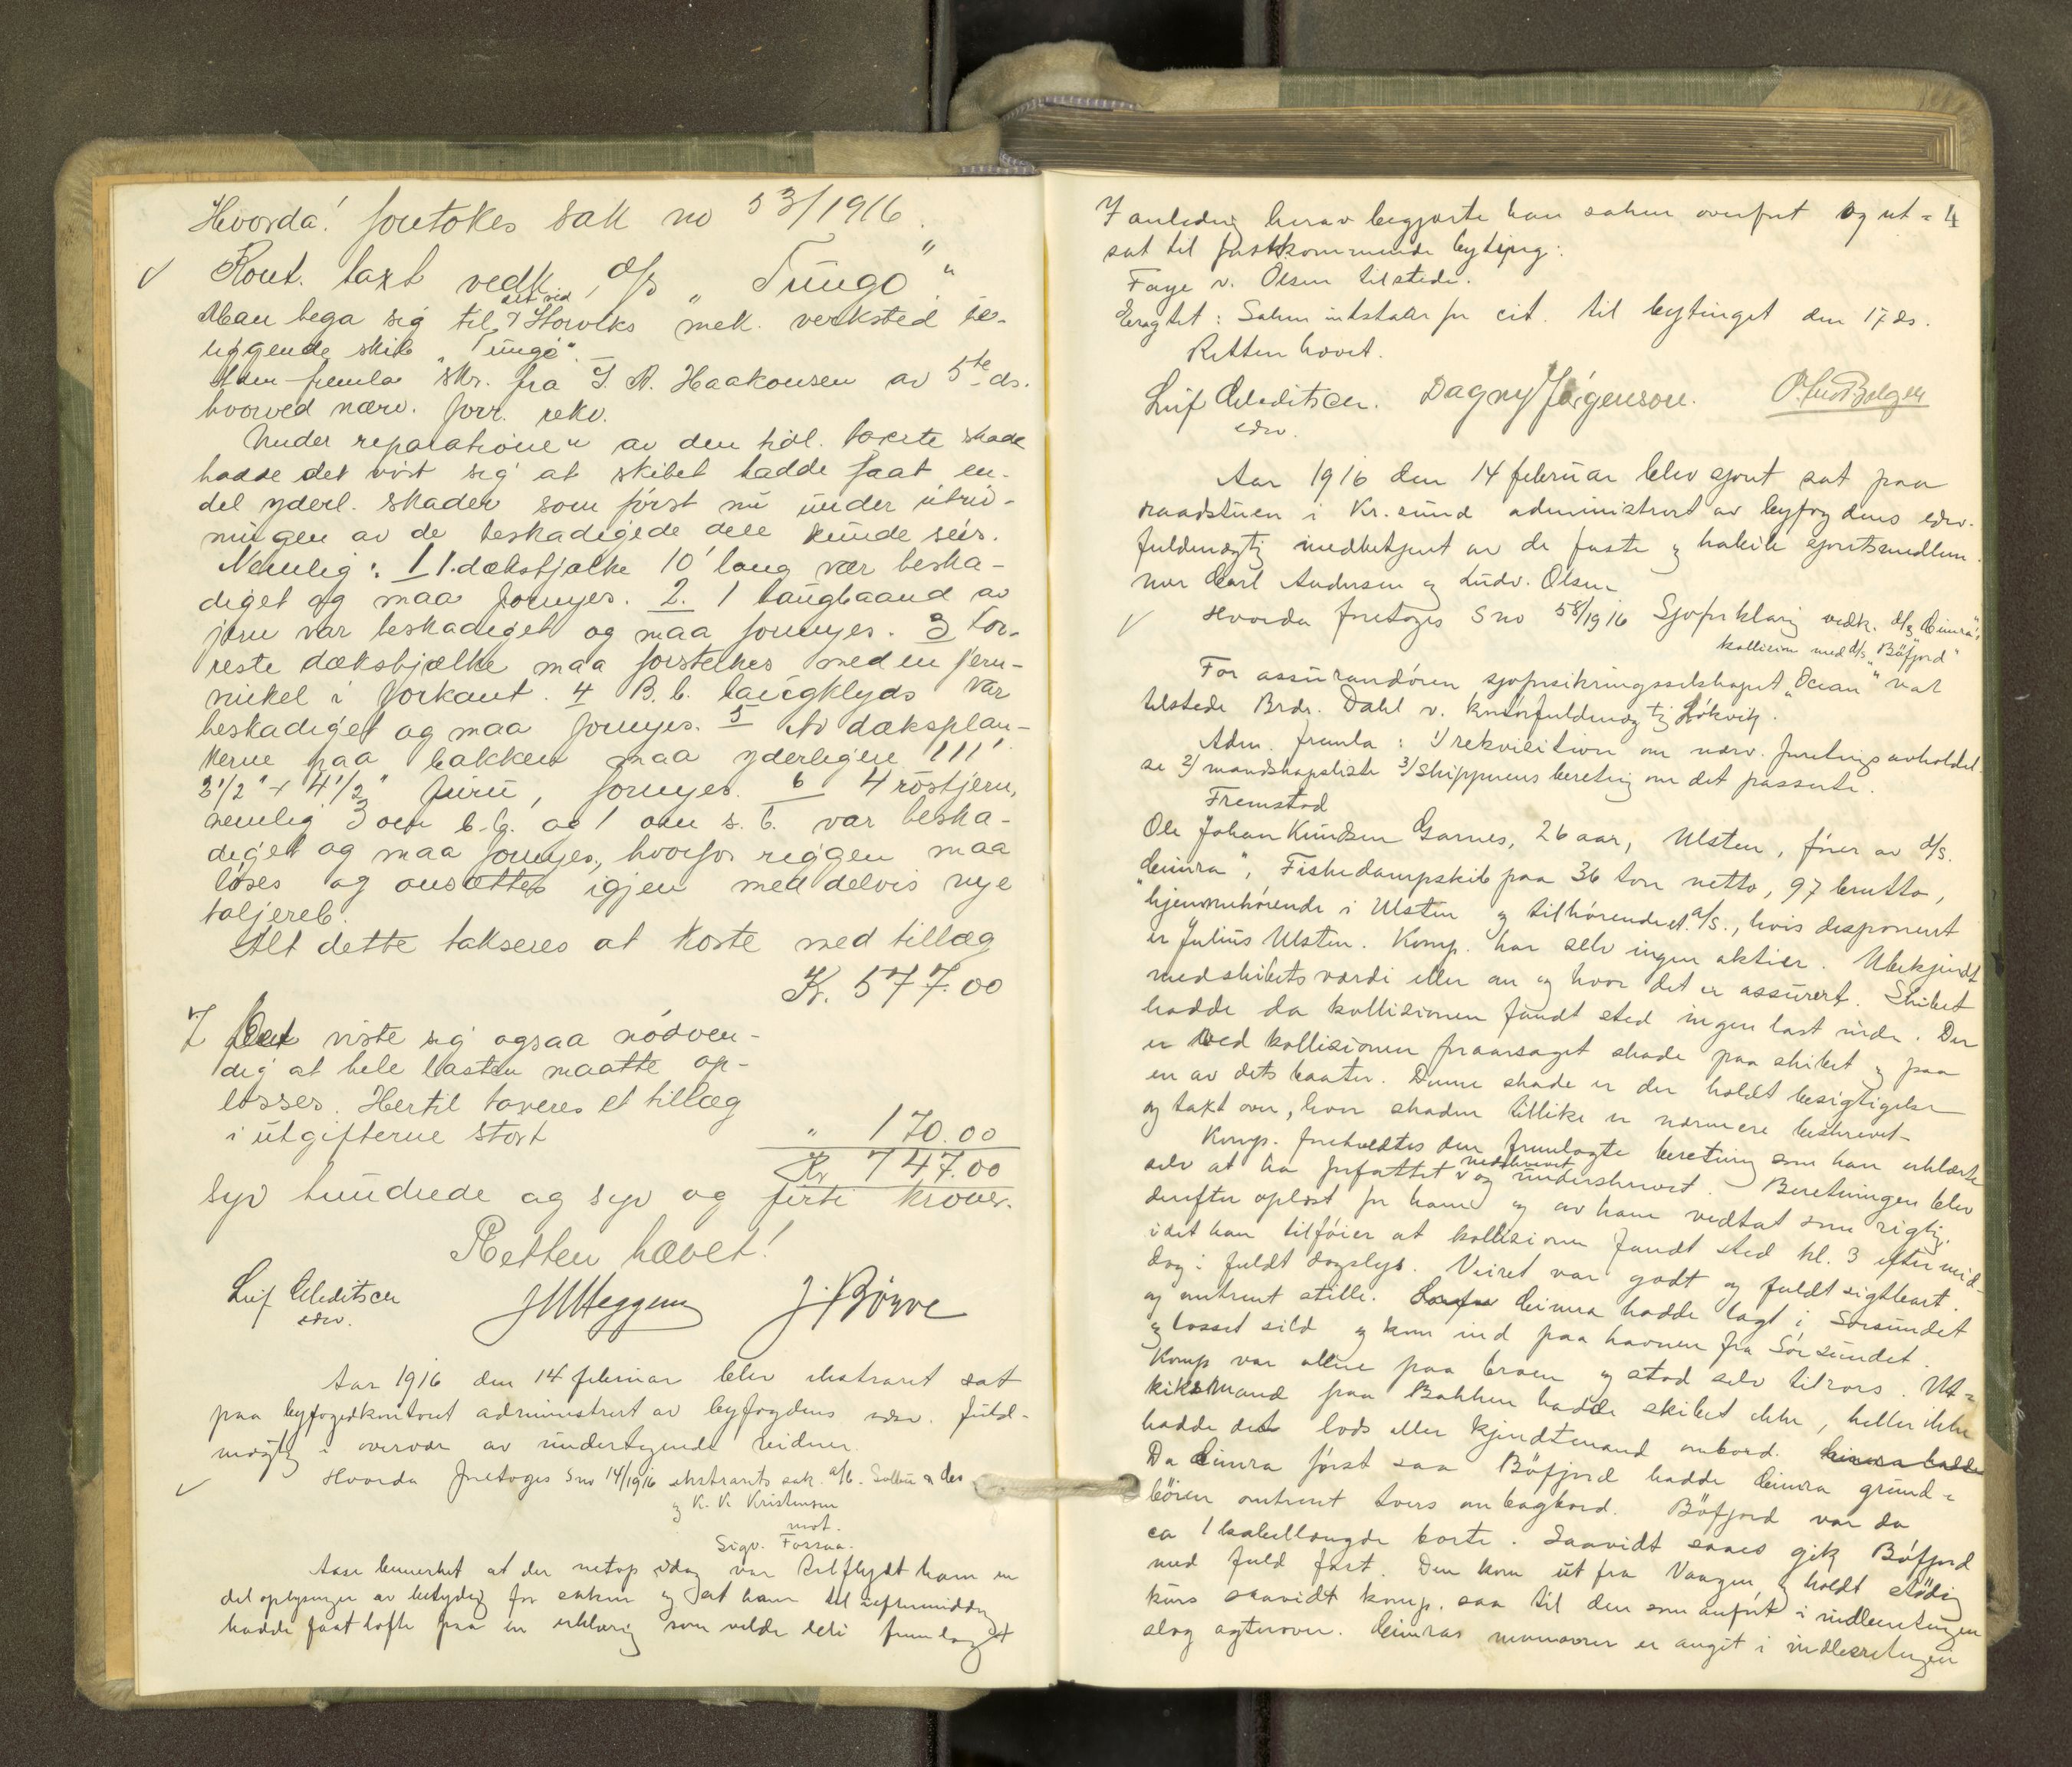 Hvorda! foretokes sak no 53/1916.
✓ Kont. takt vedk. d/s "Tungö".
Man bega sig til det ved Storviks mek. verksted be-
liggende skib "Tungö".
Adm fremla skr. fra J. A. Haakonsen av 5te ds.
hvorved nærv. forr. rekv.
Under reparationen av den tidl. takserte skade
hadde det vist sig at skibet hadde faat en-
del yderl. skader som først nu under utriv-
ningen av de beskadigede dele kunde sees.
Nemlig: 1 1. dæksbjælke 10' lang var beska-
diget og maa fornyes. 2. 1 baugbaand av
jern var beskadiget og maa fornyes. 3 For-
reste dæksbjælke maa forsterkes med en jern-
vinkel i forkant. 4 B.b. baugklyds var
beskadiget og maa fornyes. 5 Av dæksplan-
kerne paa bakken maa yderligere 111'
3 1/2" x 4 1/2" furu, fornyes. 6 4 røstjern,
nemlig 3 om b.b. og 1 om s.b. var beska-
diget og maa fornyes, hvorfor riggen maa
løses og ansættes igjen med delvis nye
taljereb.
Alt dette takseres at koste med tillæg
Kr. 577.00
7 Det viste sig ogsaa nödven-
dig at hele lasten maatte op-
losses. Hertil taxeres et tillæg
i utgifterne stort " 170.00
Kr 747.00
Syv hundrede og syv og firti kroner.
Retten hævet!
Leif Meditsen J M Heggem J. Börve
edsv.
Aar 1916 den 14 februar blev ekstraret sat
paa byfogedkontoret administrert av byfogdens edsv. fuld-
mægtig i overvær av undertegnede vidner.
✓ Hvorda foretoges S no 14/1916 ekstrarets sak
og K. K. Kristensen
mot.
Sigv. Forsaa.
Aase bemerket at der netop idag var tilflydt ham en
del oplysninger av betydning for saken og at han til i eftermiddag
hadde faat løfte paa en erklæring som vilde bli fremlagt
I anledning herav begjærte han saken overført og ut= 4
sat til førstkommende byting:
Faye v. Olsen tilstede.
Eragtet: Saken indstaar for cit. til bytinget den 17 ds.
Retten hævet.
Leif Meditsen. Dagny Jørgenson.
edsv.
Aar 1916 den 14 februar blev sjøret sat paa
raadstuen i Kr.sund administrert av byfogdens edsv.
fuldmægtig medbetjent av de faste og habile sjøretsmedlem-
mer Carl Andersen og Ludv. Olsen
✓ Hvorda foretoges S no 58/1916 Sjøforklaring vedk. d/s "Cimra"s
kollision med d/s "Böfjord"
For assurandøren sjøforsikringsselskapet "Ocean" var
tilstede Brdr. Dahl v. kontorfuldmægtig Løkvik.
Adm. fremla: 1/ rekvisition om nærv. foretnings avholdel-
se 2/ mandskapsliste 3/ Skipperens beretning om det passerte.
Fremstod
Ole Johan Knudsen Garnes, 26 aar, Ulsten, fører av d/s.
"Cimra", Fiskedampskib paa 36 ton netto, 97 brutto,
hjemmehørende i Ulsten og tilhørende et a/s., hvis disponent
er Julius Ulsten. Komp. har selv ingen aktier. Ubekjendt
med skibets værdi eller om og hvor det er assurert. Skibet
hadde da kollisionen fandt sted ingen last inde. Der
er ved kollisionen foraarsaget skade paa skibet og paa
en av dets baater. Denne skade er der holdt besigtigelse
og takt over, hvor skaden tillike er nærmere beskrevet.
Komp. foreholdtes den fremlagte beretning som han erklærte
selv at ha forfattet nedskrevet og underskrevet. Beretningen blev
derefter oplæst for ham og av ham vedtat som rigtig.
idet han tilføier at kollisionen fandt sted kl. 3 eftermid-
dag i fuldt dagslys. Veiret var godt og fuldt sigtbart.
og omtrent stille. Cimra hadde lagt i Sørsundet
og losset sild og kom ind paa havnen fra Sörsundet.
Komp var alene paa broen og stod selv tilrors. Ut=
kiksmand paa Bakken hadde skibet ikke, heller ikke
hadde det lods eller kjendtmand ombord. Cimra hadde
Da Cimra først saa Böfjord hadde Cimra grund=
böien omtrent tvers om bagbord. Böfjord var da
ca 1 kabellængde borte. Saavidt saaes gik Böfjord
med fuld fart. Den kom ut fra Vaagen og holdt stödig
kurs saavidt komp. saa til den som anført i indberetningen
slog agterover. Cimras manøvrer er angit i indberetningen